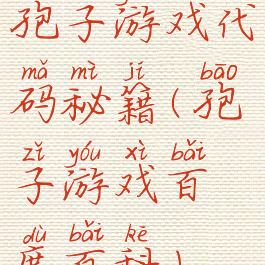 孢子游戏代
mǎ mì jí bāo
码秘籍(孢
zǐ yóu xì bǎi
子游戏百
dù bǎi kē
度百科)